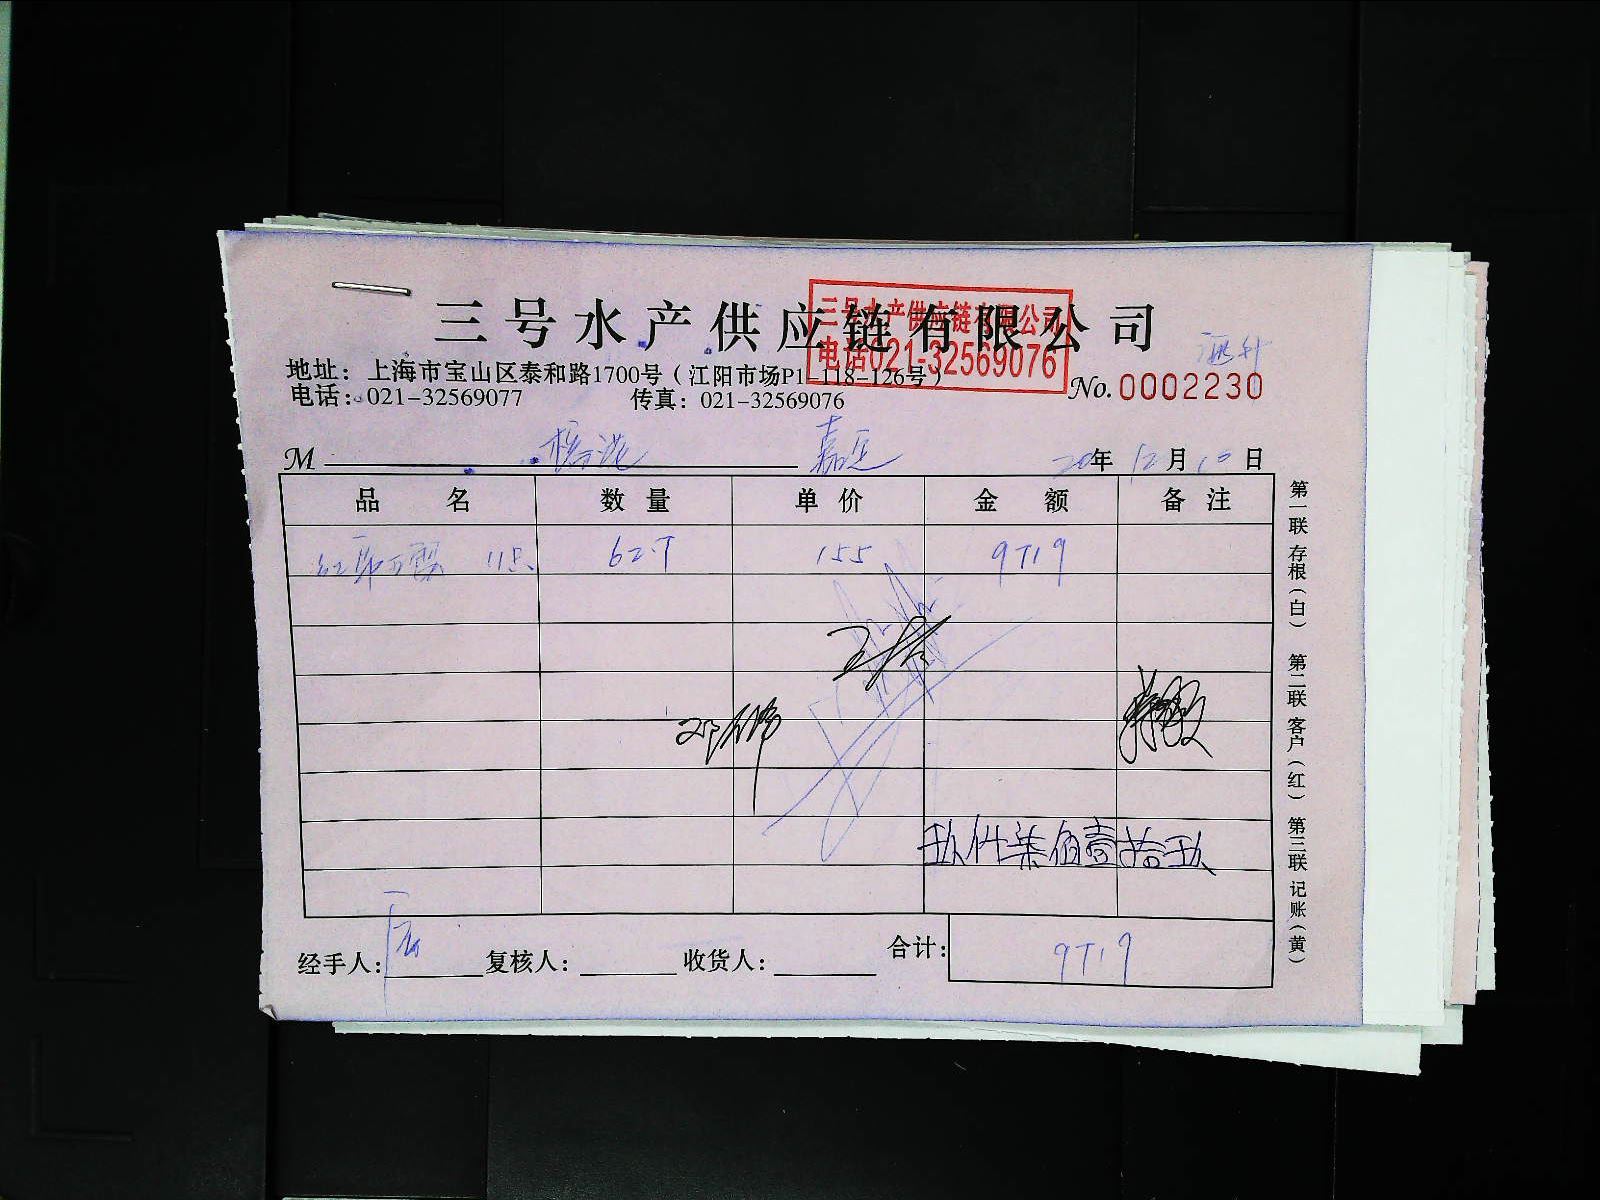 三号水产供应链有限公司
三号水产供应链有限公司
电话021-32569076
地址：上海市宝山区泰和路1700号（江阳市场P1-118-126号）
电话：021-32569077 传真：021-32569076
No. 0002230
M 嘉定 20年12月10日
品名 数量 单价 金额 备注
62.7 155 9719
玖仟柒佰壹拾玖
经手人： 复核人： 收货人： 合计： 9719
第一联 存根（白） 第二联 客户（红） 第三联 记账（黄）